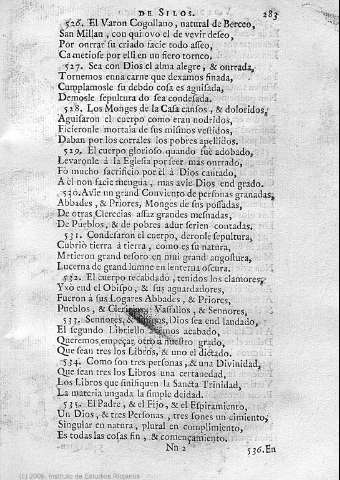 DE SILOS. 283
526. El Varon Cogollano, natural de Berceo,
San Millan, con qui ovo el de vevir deseo,
Por onrrar su criado facie todo asseo,
Ca metiose por elli en un fiero torneo.
527. Sea con Dios el alma alegre, & onrrada,
Tornemos enna carne que dexamos finada,
Cumplamosle su debdo cosa es aguisada,
Demosle sepultura do sea condesada.
528. Los Monges de la Casa cansos, & doloridos,
Aguisaron el cuerpo como eran nodridos,
Ficieronle mortaia de sus mismos vestidos,
Daban por los corrales los pobres apellidos.
529. El cuerpo glorioso quando fue adobado,
Levaronle à la Eglesia por seer mas onrrado,
Fo mucho sacrificio por él à Dios cantado,
A él non facie mengua, mas avie Dios end grado.
530. Avie un grand Conviento de personas granadas,
Abbades, & Priores, Monges de sus possadas,
De otras Clerecias assaz grandes mesnadas,
De Pueblos, & de pobres adur serien contadas.
531. Condesaron el cuerpo, deronle sepultura,
Cubriò tierra à tierra, como es su natura,
Metieron grand tesoro en mui grand angostura,
Lucerna de grand lumne en lenterna oscura.
532. El cuerpo recabdado, tenidos los clamores,
Yxò end el Obispo, & sus aguardadores,
Fueron à sus Logares Abbades, & Priores,
Pueblos, & Clerigos, Vassallos, & Sennores,
533. Sennores, & Dios sea end laudado,
El segundo Libriello avemos acabado,
Queremos empeçar otro à nuestro grado,
Que sean tres los Libros, & uno el dictado.
534. Como son tres personas, & una Divinidad,
Que sean tres los Libros una certanedad,
Los Libros que sinifiquen la Sancta Trinidad,
La materia ungada la simple deidad.
535. El Padre, & el Fijo, & el Espiramiento,
Un Dios, & tres Personas, tres sones un cimiento,
Singular en natura, plural en complimiento,
Es todas las cosas fin, & començamiento.
Nn 2 536. En
(c) 2006, Instituto de Estudios Riojanos